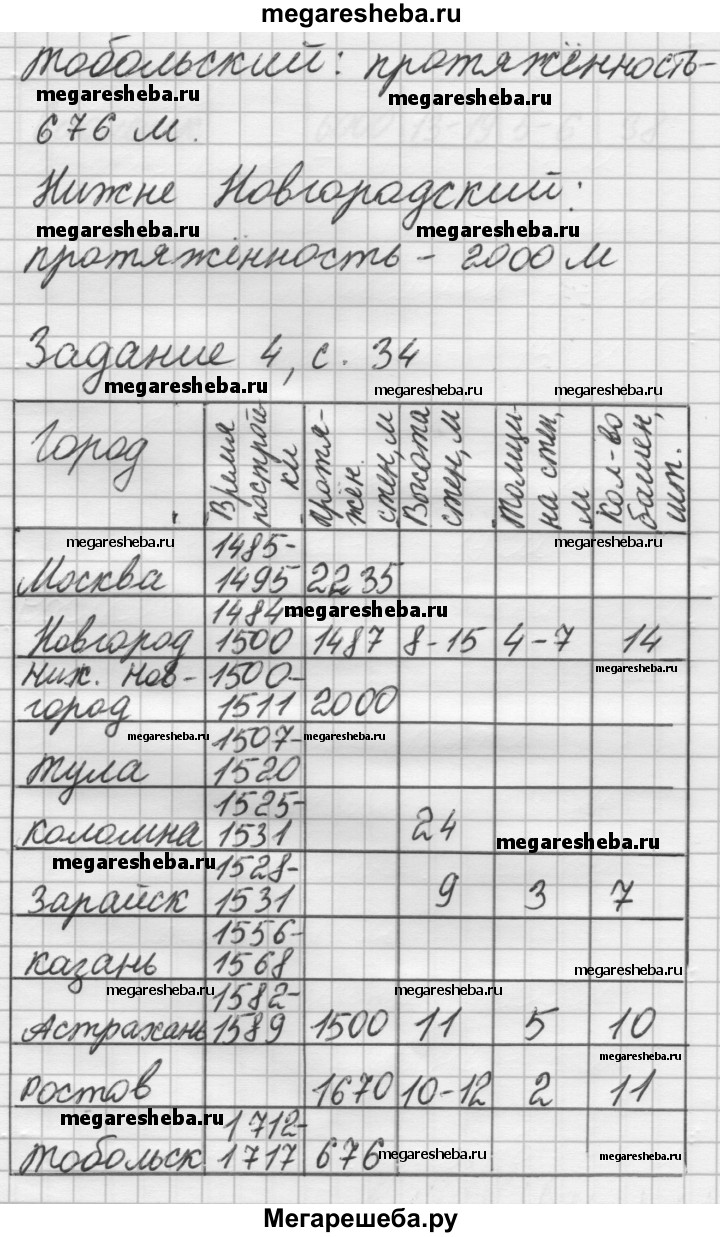 megaresheba.ru
тобольский: протяжённость-
megaresheba.ru megaresheba.ru
676 м.
Нижне Новгородский:
megaresheba.ru megaresheba.ru
протяжённость - 2000 м
Задание 4, с. 34
megaresheba.ru megaresheba.ru megaresheba.ru
Город Время построй-ки Протя-жён. стен, м Высота стен, м Толщи-на стен, м Кол-во башен, шт.
megaresheba.ru 1485- megaresheba.ru
Москва 1495 2235
1484 megaresheba.ru
Новгород 1500 1487 8-15 4-7 14
Ниж. Нов- 1500- megaresheba.ru
город 1511 2000
megaresheba.ru 1507- megaresheba.ru
Тула 1520
1525-
Коломна 1531 24 megaresheba.ru
megaresheba.ru 1528-
Зарайск 1531 9 3 7
1556-
Казань 1568 megaresheba.ru
megaresheba.ru 1582- megaresheba.ru
Астрахань 1589 1500 11 5 10
megaresheba.ru
Ростов 1670 10-12 2 11
megaresheba.ru 1712-
Тобольск 1717 676 megaresheba.ru megaresheba.ru
Мегарешеба.ру